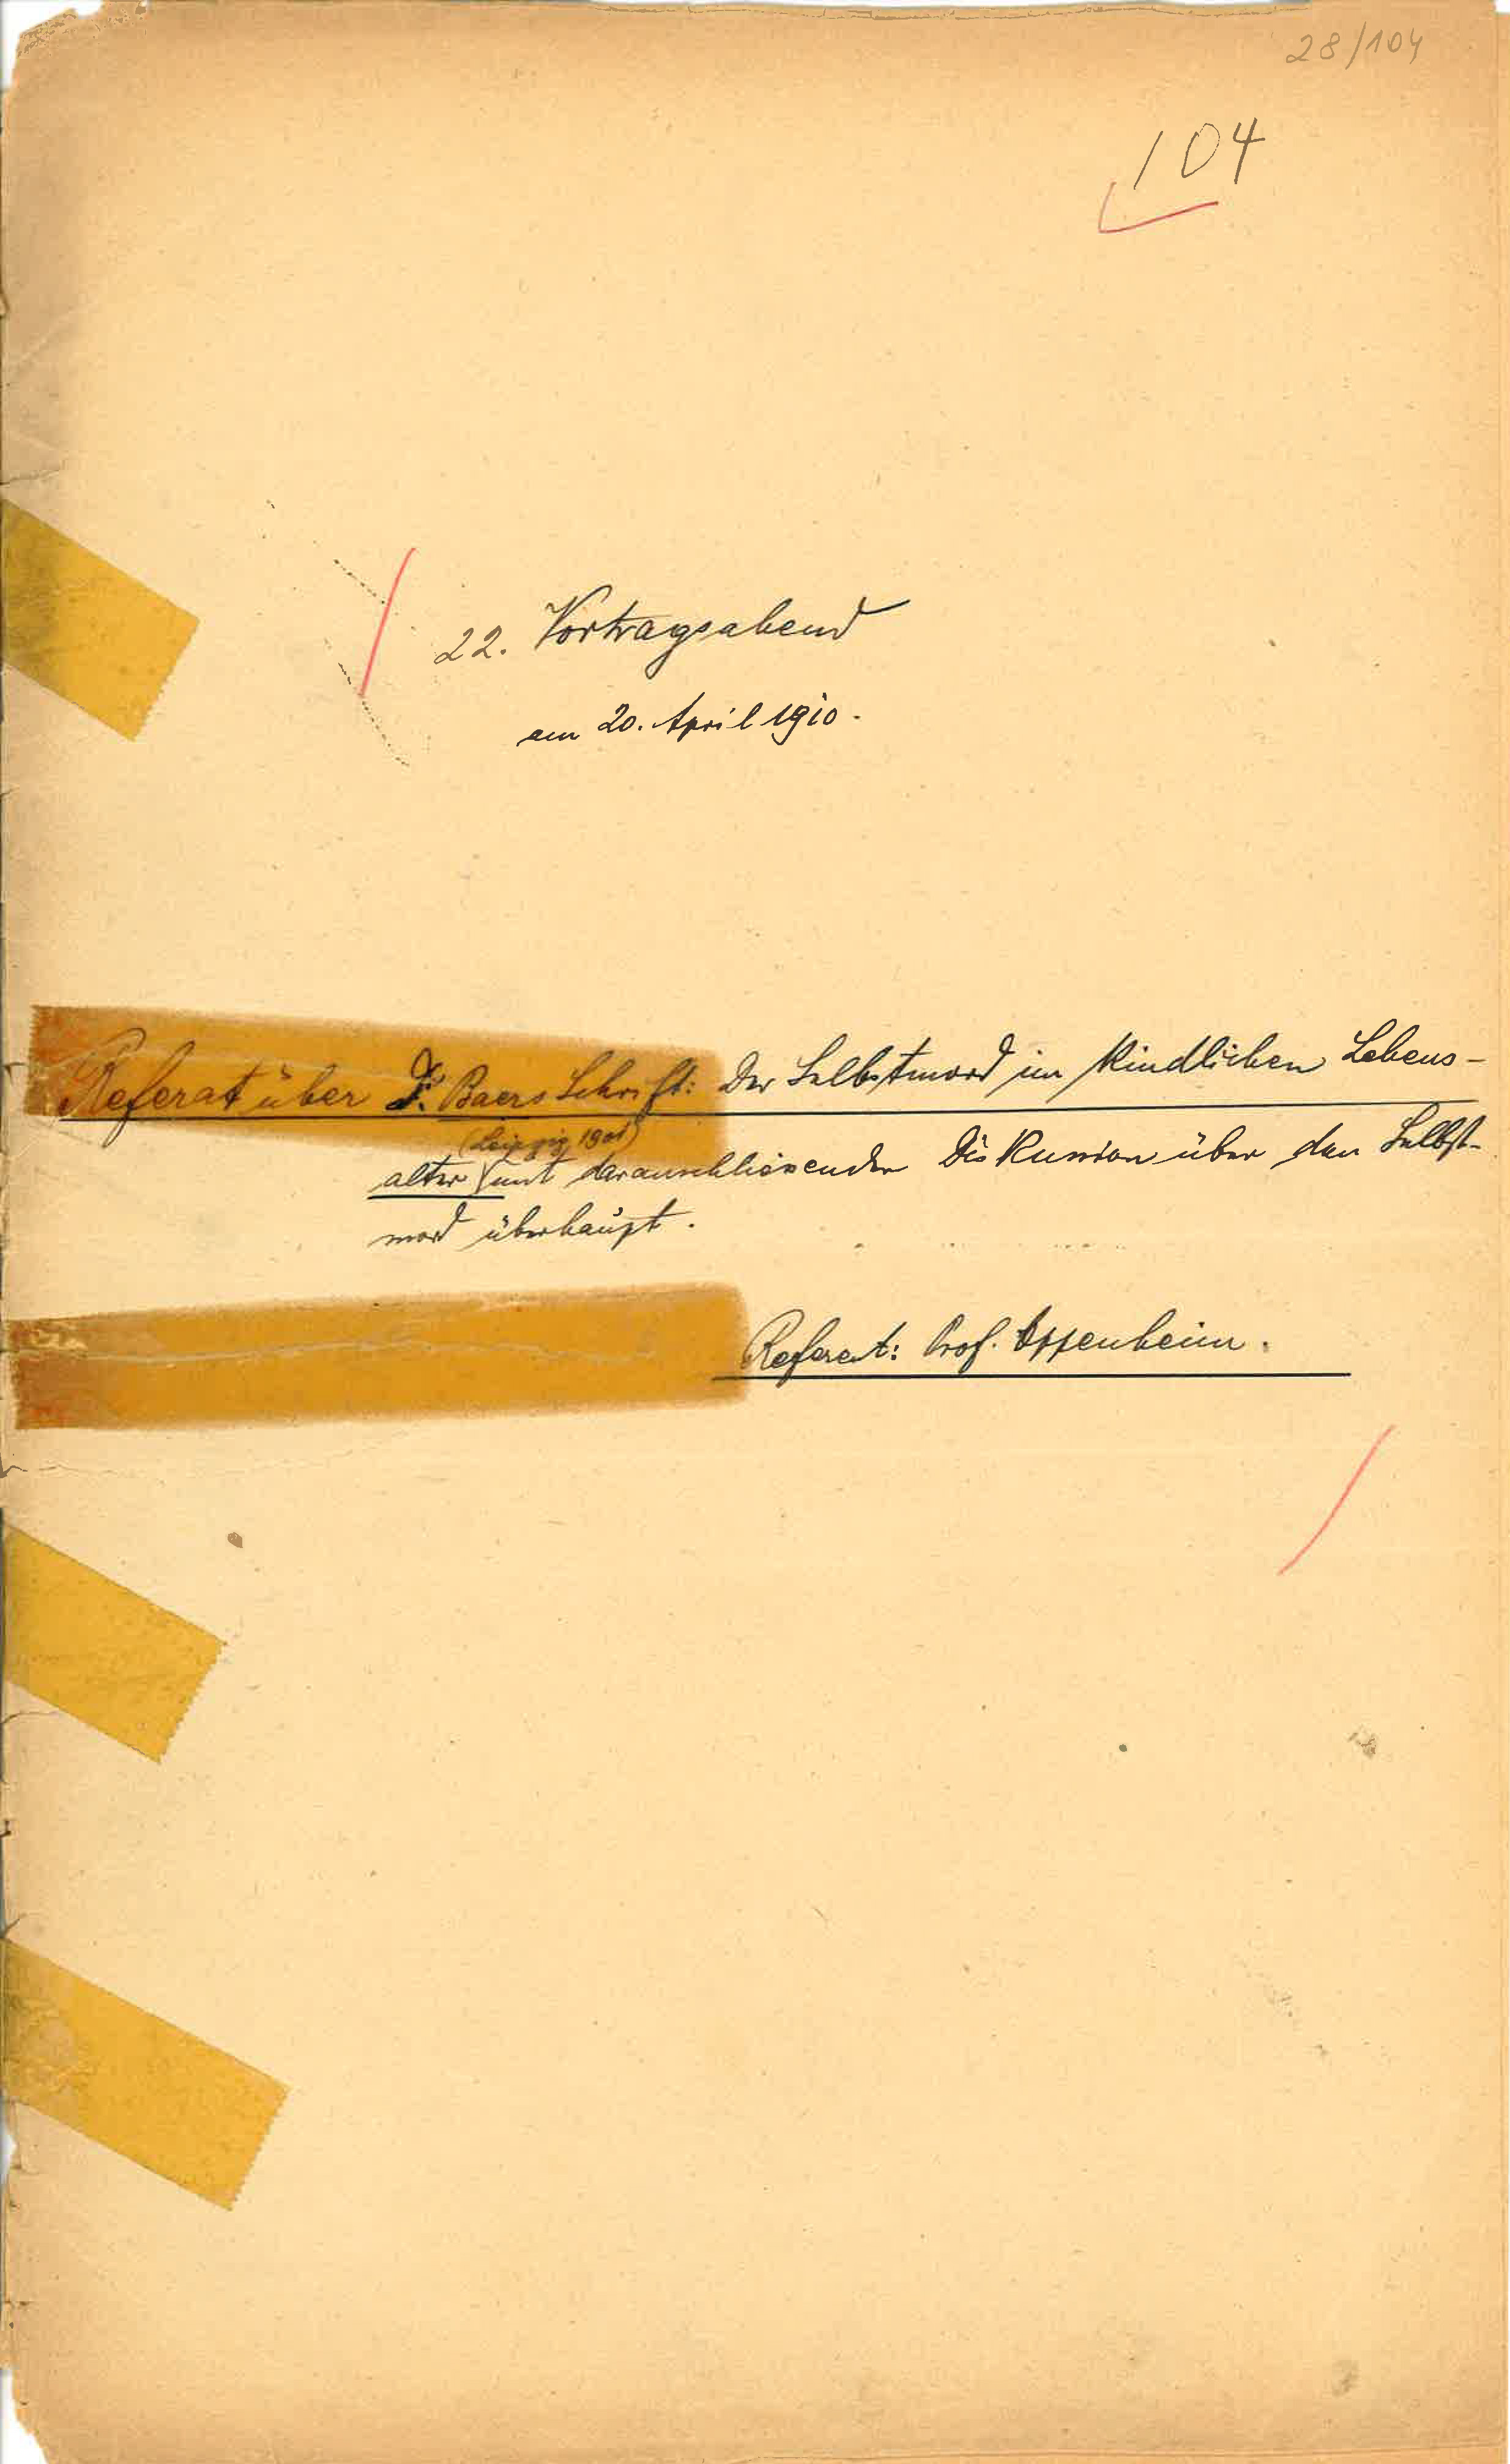 28/104
104
22. Vortragsabend
am 20. April 1910.
Referat über Dr. Baers Schrift: Der Selbstmord im kindlichen Lebens-
(Leipzig 1901)
alter mit daranschliessender Diskussion über den Selbst-
mord überhaupt.
Referent: Prof. Oppenheim.